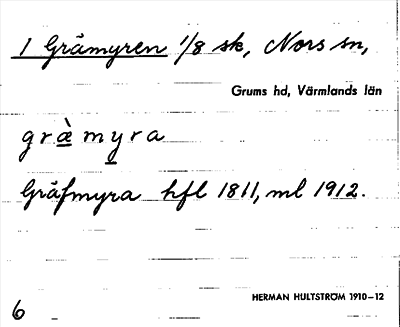 1 Gråmyren 1/8 sk, Nors sn,
Grums hd, Värmlands län
græ̀ myra
Gråfmyra hfl 1811, ml 1912.
HERMAN HULTSTRÖM 1910–12
6